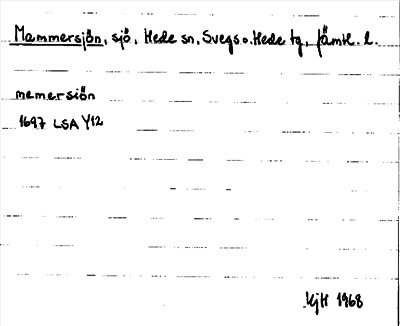 Mammersjön, sjö, Hede sn, Svegs o. Hede tg, Jämtl. l.
memersiön
1697 LSA Y12
KjH 1968